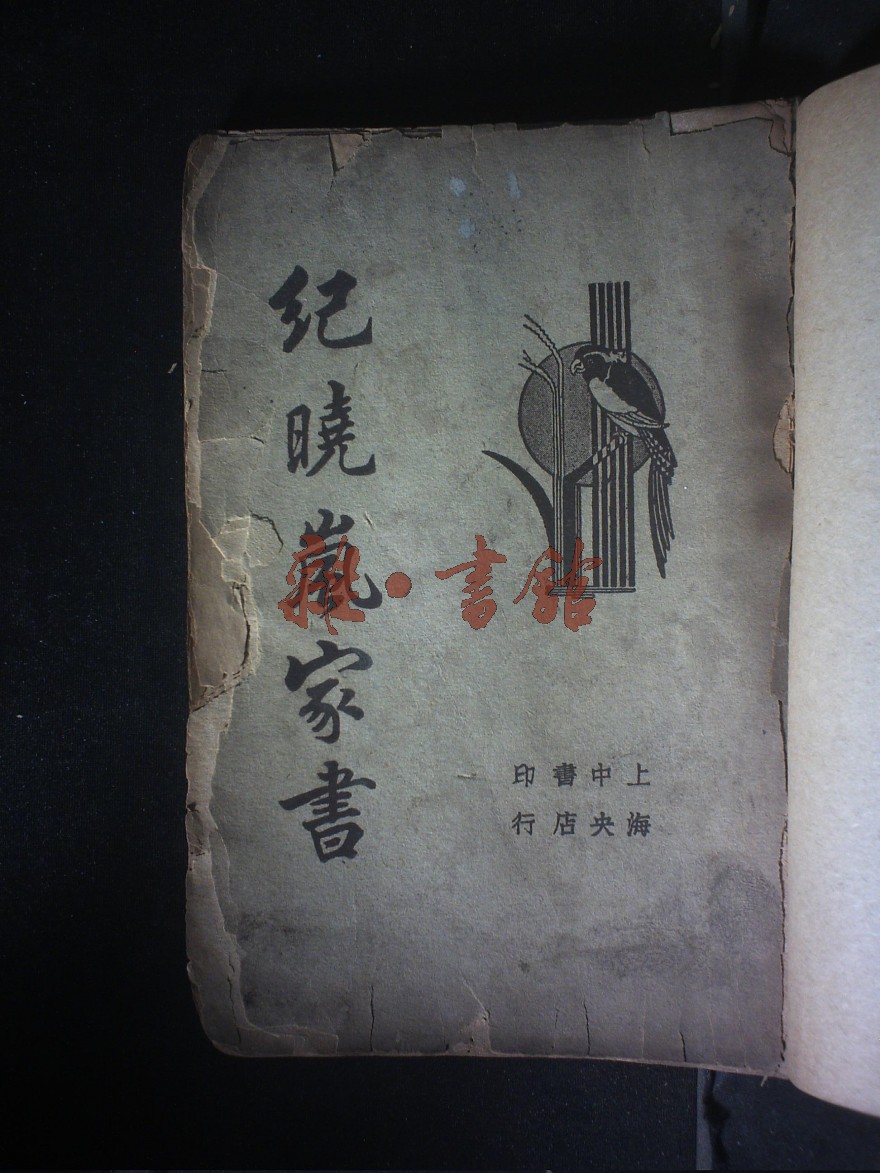 紀曉嵐家書
雜·書館
上海中央書店印行